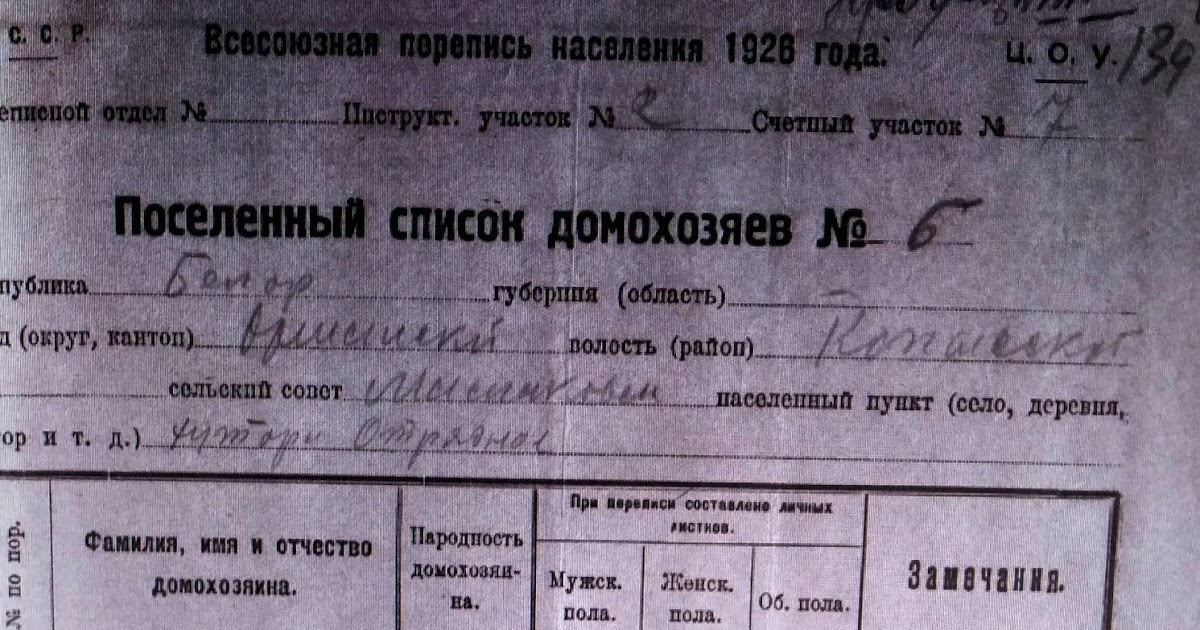 С. С. Р. Всесоюзная перепись населения 1926 года. Ц. О. У. 139
еписной отдел № Инструкт. участок № 2 Счетный участок № 7
Поселенный список домохозяев № 6
публика Белор губерния (область) —
д (округ, кантон) Оршанский волость (район) Копысский
сельский совет населенный пункт (село, деревня,
ор и т. д.) хутора Отрадное
№ по пор.
Фамилия, имя и отчество домохозяина.
Народность домохозяи-
на.
При переписи составлено личных
листков.
Мужск. пола.
Женск. пола.
Об. пола.
Замечания.